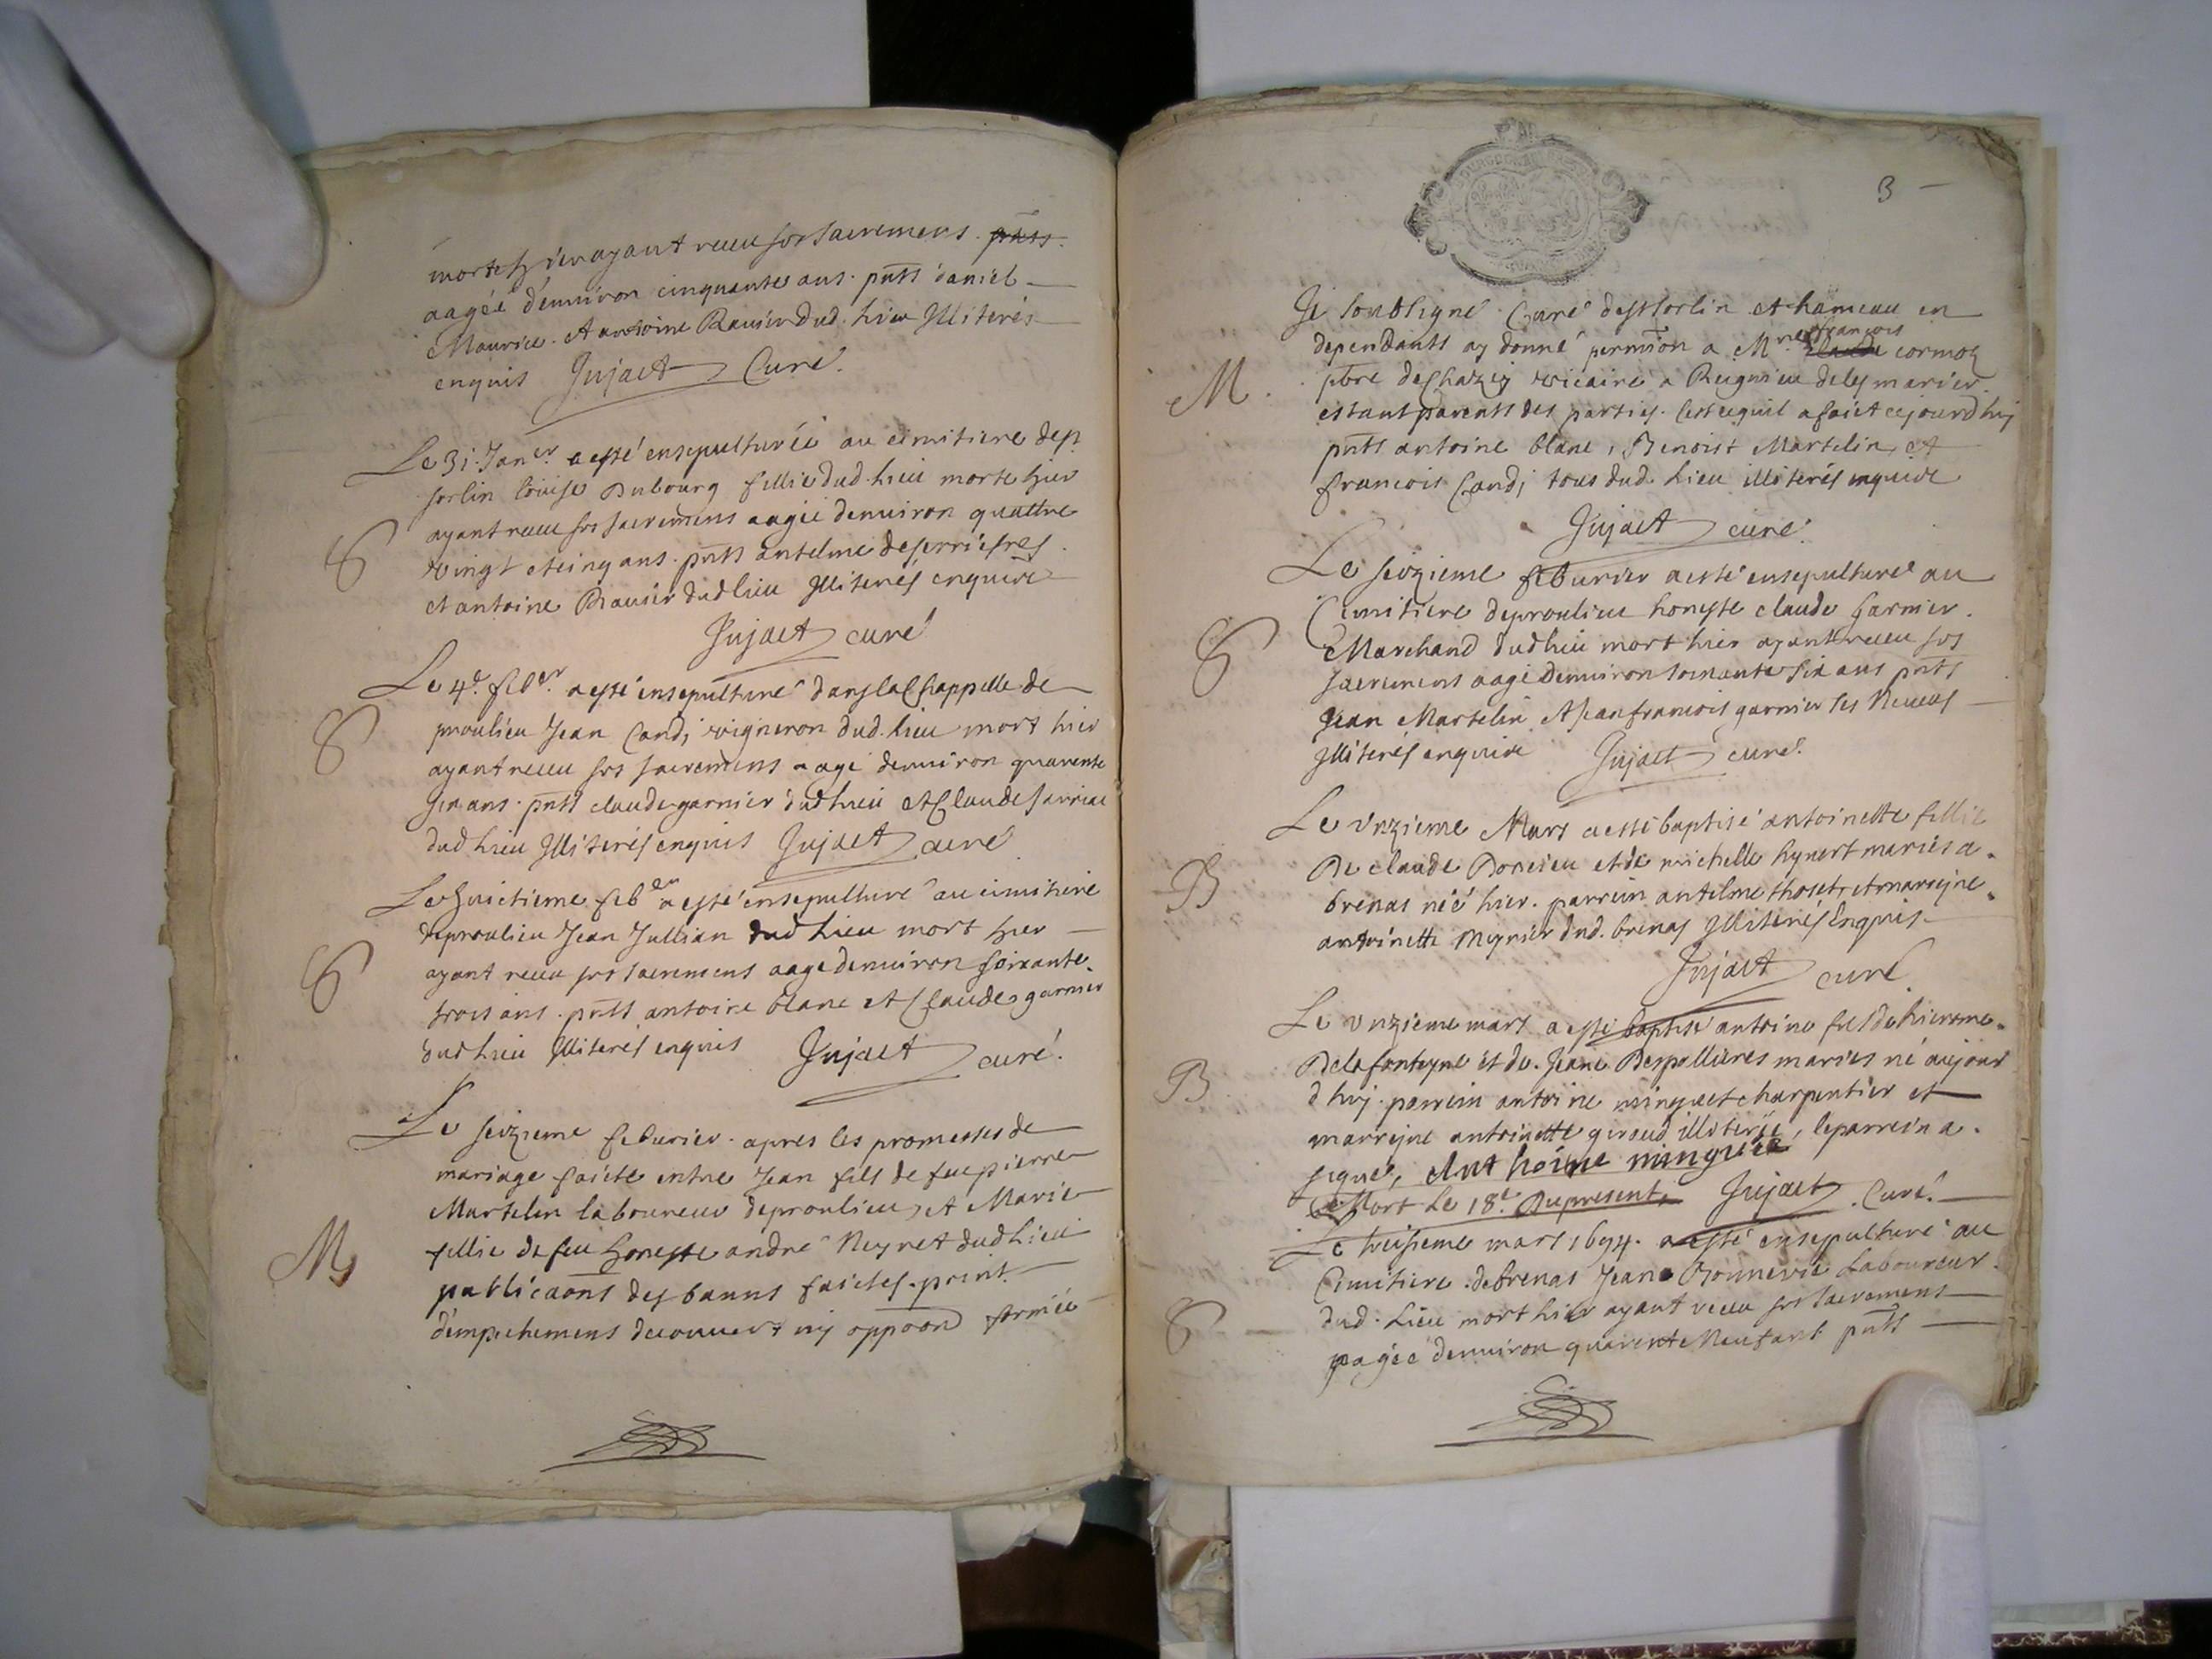 morte hier ayant receu ses sacremens. pnts
aagée d'enuiron cinquante ans. pnts daniel
Maurice. Et antoine Rauier dud. lieu Illiterés
enquis Jujact Curé.
Le 31. Janer. a esté ensepulturée au cimitiere de st
sorlin louise Dubourg fillie dud. lieu morte hier
S
ayant receu ses sacremens aagée denuiron quattre
vingt et cinq ans. pnts antelme deserriesres
et antoine Rauier dud lieu Illiterés enquire
Jujact curé
Le 4e. feber. a esté ensepulturé dans la Chappelle de
S
proulieu Jean Candi vigneron dud. lieu mort hier
ayant receu ses sacremens aagé denuiron quarente
six ans. pnts claude garnier dud lieu Et Claude
dud lieu Illiterés enquis Jujact curé
Le huictieme feber a esté ensepulturé au cimitiere
de proulieu Jean Jullian dud lieu mort hier
S
ayant receu ses sacremens aagé denuiron soixante
trois ans. pnts antoine blanc et Claude garnier
dud lieu Illiterés enquis Jujact curé.
Le seizieme feburier. apres les promesses de
mariage faicte entre Jean fils de feu pierre
Martelin laboureur de proulieu, et Marie
M
fillie de feu honeste andré Neyret dud lieu
publicaons des banns faictes. point
d'empechemens decouuert ny oppoon formée
3
Je soubsigné Curé de st sorlin et hameau en
dependants ay donné permion a Mre françois claude cormoz
M.
pbre de Chazey vicaire a Reignieu de les marier
estant parents des parties. Cest ce quil a faict ce jourdhuy
pnts antoine blanc, Benoist Martelin, et
francois Candi tous dud. lieu illiterés enquire
Jujact curé.
Le seizieme feburier a esté ensepulturé au
Cimitiere de proulieu honeste claude garnier
S
Marchand dud lieu mort hier ayant receu ses
sacremens aagé denuiron soixante six ans pnts
Jean Martelin Et Jean francois garnier ses Neueus
Illiterés enquire Jujact curé.
Le vnzieme Mars a esté baptisé antoinette fillie
De claude Dorcieu et de michelle hynert mariés a
B
brenas néé hier. parrein antelme thoset et marreyne
antoinette Meynier dud. brenas Illiterés Enquis
Jujact curé
Le vnzieme mars a esté baptisé antoine fils de hierome
Delafonteyne et de. Jeane Despollieres mariés né aujour
B
d'huy. parrein antoine minguet charpentier et
marreyne antoinette giroud illiterée, le parrein a
signé, Anthoine minguet
Mort Le 18e. Du present, Jujact Curé.
Le treisieme mars 1694. a esté ensepulturé au
Cimitiere. de brenas Jean Bonnevie Laboureur
S
dud. Lieu mort hier ayant receu ses sacremens
aagée denuiron quarente Neuf ans pnts